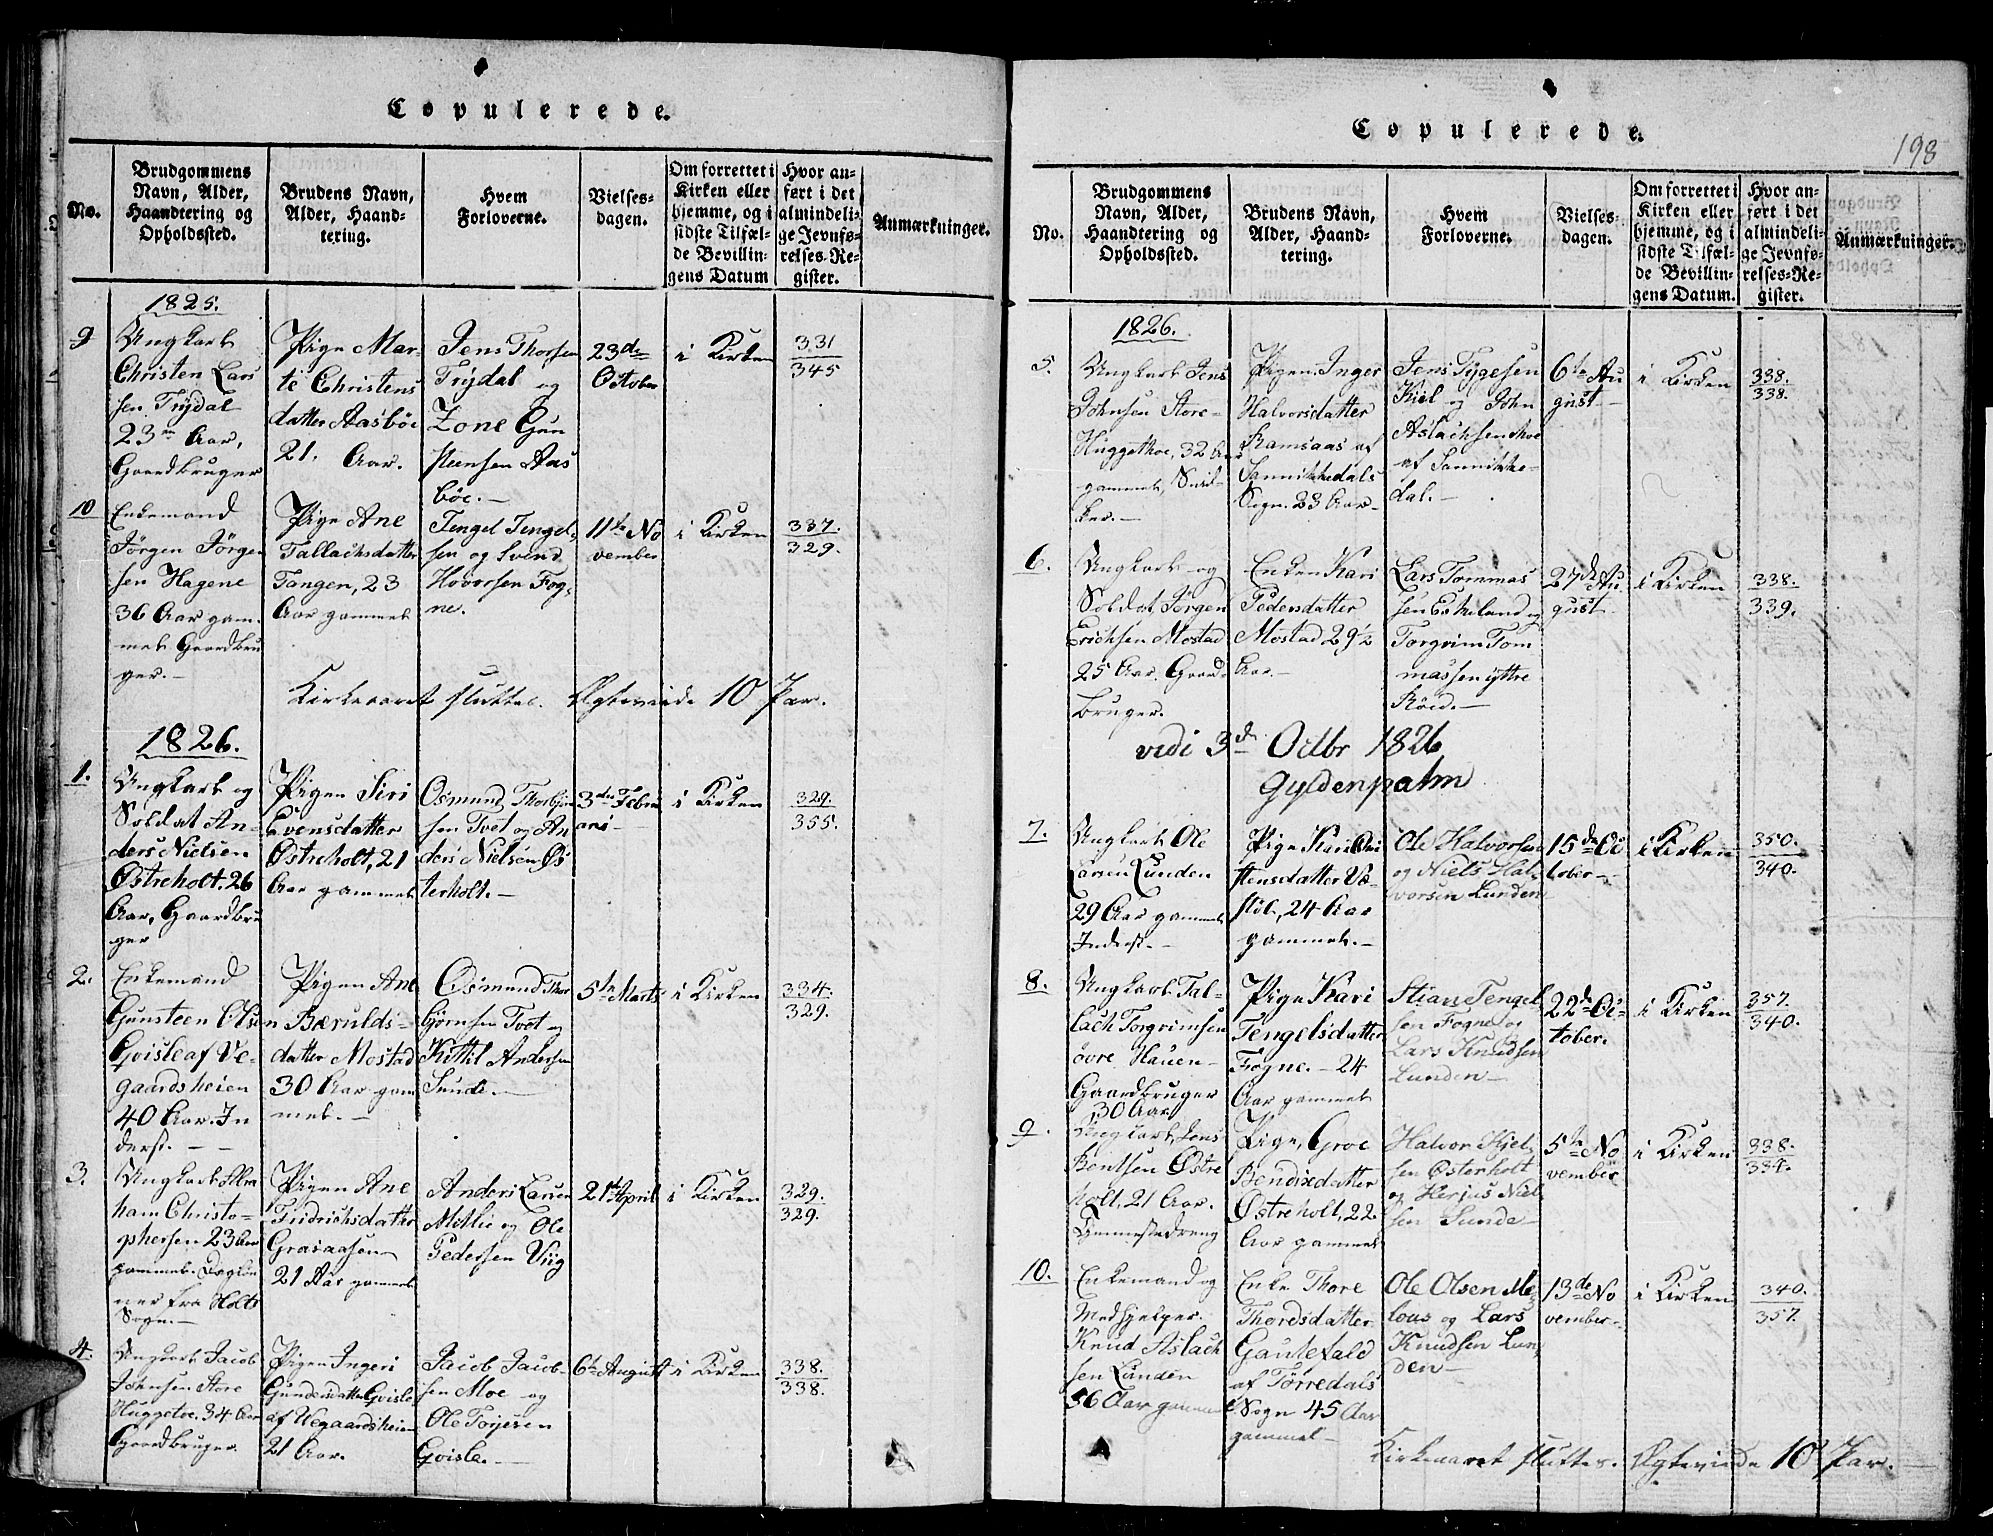 Copulerede.
No.
Brudgommens
Navn, Alder,
Haandtering og
Opholdssted.
Brudens Navn,
Alder, Haand-
tering.
Hvem
Forloverne.
Vielses-
dagen.
Om forrettet i
Kirken eller
hjemme, og i
sidste Tilfæl-
de Bevillin-
gens Datum
Hvor an-
ført i det
almindeli-
ge Jevnfø-
relses-Re-
gister.
Anmærkninger.
1825.
9
Ungkarl
Christen Lars
sen Trydal
23 Aar,
Gaardbruger
Pige Mar-
te Christens
datter Aasböe
21. Aar.
Jens Thorsen
Trydal og
Zone Gun
steensen Aas
böe.-
23de
October
i Kirken
331
345
10
Enkemand
Jörgen Jörgen
sen Hagene
36 Aar gam-
mel Gaardbru
ger.-
Pige Ane
Tallachsdatter
Tangen, 23
Aar gammel
Tengel Tengel-
sen og Svend
Hovorsen Fog-
ne.
11te No
vember
i Kirken
337.
329.
Kirkeaaret sluttet. Ægteviede 10 Par.
1826.
1.
Ungkarl og
Soldat An-
ders Nielsen
Østreholt, 26
Aar, Gaardbru
ger
Pigen Siri
Evensdatter
Østreholt, 21
Aar gammel
Osmund Thorbjön
sen Tvet og An
ders Nielsen Øs
terholt.-
3die Febru
ari-
i Kirken
329.
355.
2.
Enkemand
Gunsteen Olsen
Gvisle af Ve-
gaardsheien
40 Aar. In
derst. -
Pigen Ane
Bærulds-
datter Mostad
30 Aar gam
mel.-
Osmund Thor
Gjörnsen Tvet og
Kittil Andersen
Sunde.-
5te Marts
i Kirken
334.
329.
3.
Ungkarl Abra
ham Christo-
phersen 23 Aar
gammel. Dagløn
ner fra Holts
Sogn.-
Pigen Ane
Fridrichsdatter
Grasaasen
21 Aar gammel
Anders Larsen
Millie og Ole
Pedersen Viig
21te April
i Kirken
329.
329.
4.
Ungkarl Jacob
Johnsen Store
Huggetoe. 34 Aar
Gaardbruger.
Pigen Ingeri
Gundersdatter Gvisle
af Wegaardsheien
21 Aar.
Jacob Jacob-
sen Moe og
Ole Torjesen
Gvisle.-
6te August
i Kirken
338.
338.
Copulerede.
198
No.
Brudgommens
Navn, Alder,
Haandtering og
Opholdssted.
Brudens Navn,
Alder, Haand-
tering.
Hvem
Forloverne.
Vielses-
dagen.
Om forrettet i
Kirken eller
hjemme, og i
sidste Tilfæl-
de Bevillin-
gens Datum.
Hvor an-
ført i det
almindeli-
ge Jevnfø-
relses-Re-
gister.
Anmærkninger.
1826.
5.
Ungkarl Jens
Johnsen Store-
Huggethoe, 32 Aar
gammel, Snid-
ker.-
Pigen Inger
Halvorsdatter
Ramsaas af
Sannikkedals
Sogn. 23 Aar-
Jens Tygesen
Kiel og John
Aslachsen Moe
af Sannikke-
dal.-
6te Au
gust-
i Kirken
338.
338.
6.
Ungkarl og
Soldat Jörgen
Erichsen Mostad
25 Aar. Gaard-
bruger.
Enken Kari
Pedersdatter
Mostad 29½
Aar.-
Lars Tommas
sen Eskeland og
Torgrim Tom
massen yttre
Röed.-
27de Au
gust-
i Kirken
338.
339.
vidi 3d Octbr 1826
Gyldenpalm
7.
Ungkarl Ole
Larsen Lunden
29 Aar gammel
Inderst.-
Pige Kari Chri
stensdatter Væ-
stöl, 24 Aar
gammel.-
Ole Halvorsen
og Niels Hal-
vorsen Lunden
15de Oc
tober-
i Kirken
350.
340.
8.
Ungkarl Tal-
lach Torgrimsen
övre Hauen-
Gaardbruger
30 Aar
Pige Kari
Tengelsdatter
Fogne.- 24
Aar gammel
Stian Tengel-
sen Fogne og
Lars Knudsen
Lunden-
22de Oc-
tober.
i Kirken
357.
340.
9.
Ungkarl Jens
Bentsen Østre
holt, 21 Aar.
Pige, Groe
Bendixdatter
Østreholt, 22
Aar gammel
Halvor Kjel-
sen Østerholt
og Herjus Niel
sen Sunde-
5te No
vember
i Kirken
338.
10.
Enkemand og
Medhjelper
Knud Aslach
sen Lunden
56 Aar gammel
Enke Thore
Thoresdatter
Gautefald
af Törredals
Sogn 45 Aar
gammel-
Ole Olsen Me
lous og Lars
Knudsen Lun-
den-
13de No
vember-
i Kirken
340.
357.
Kirkeaaret sluttes. Ægteviede 10 Par.-